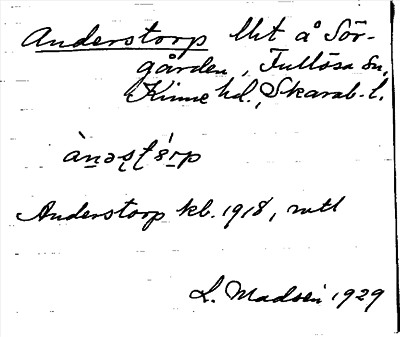 Anderstorp lht å Sör-
gården, Fullösa sn,
Kinne hd., Skarab. l.
Anderstorp kb. 1918, mtl
L. Madsén 1929